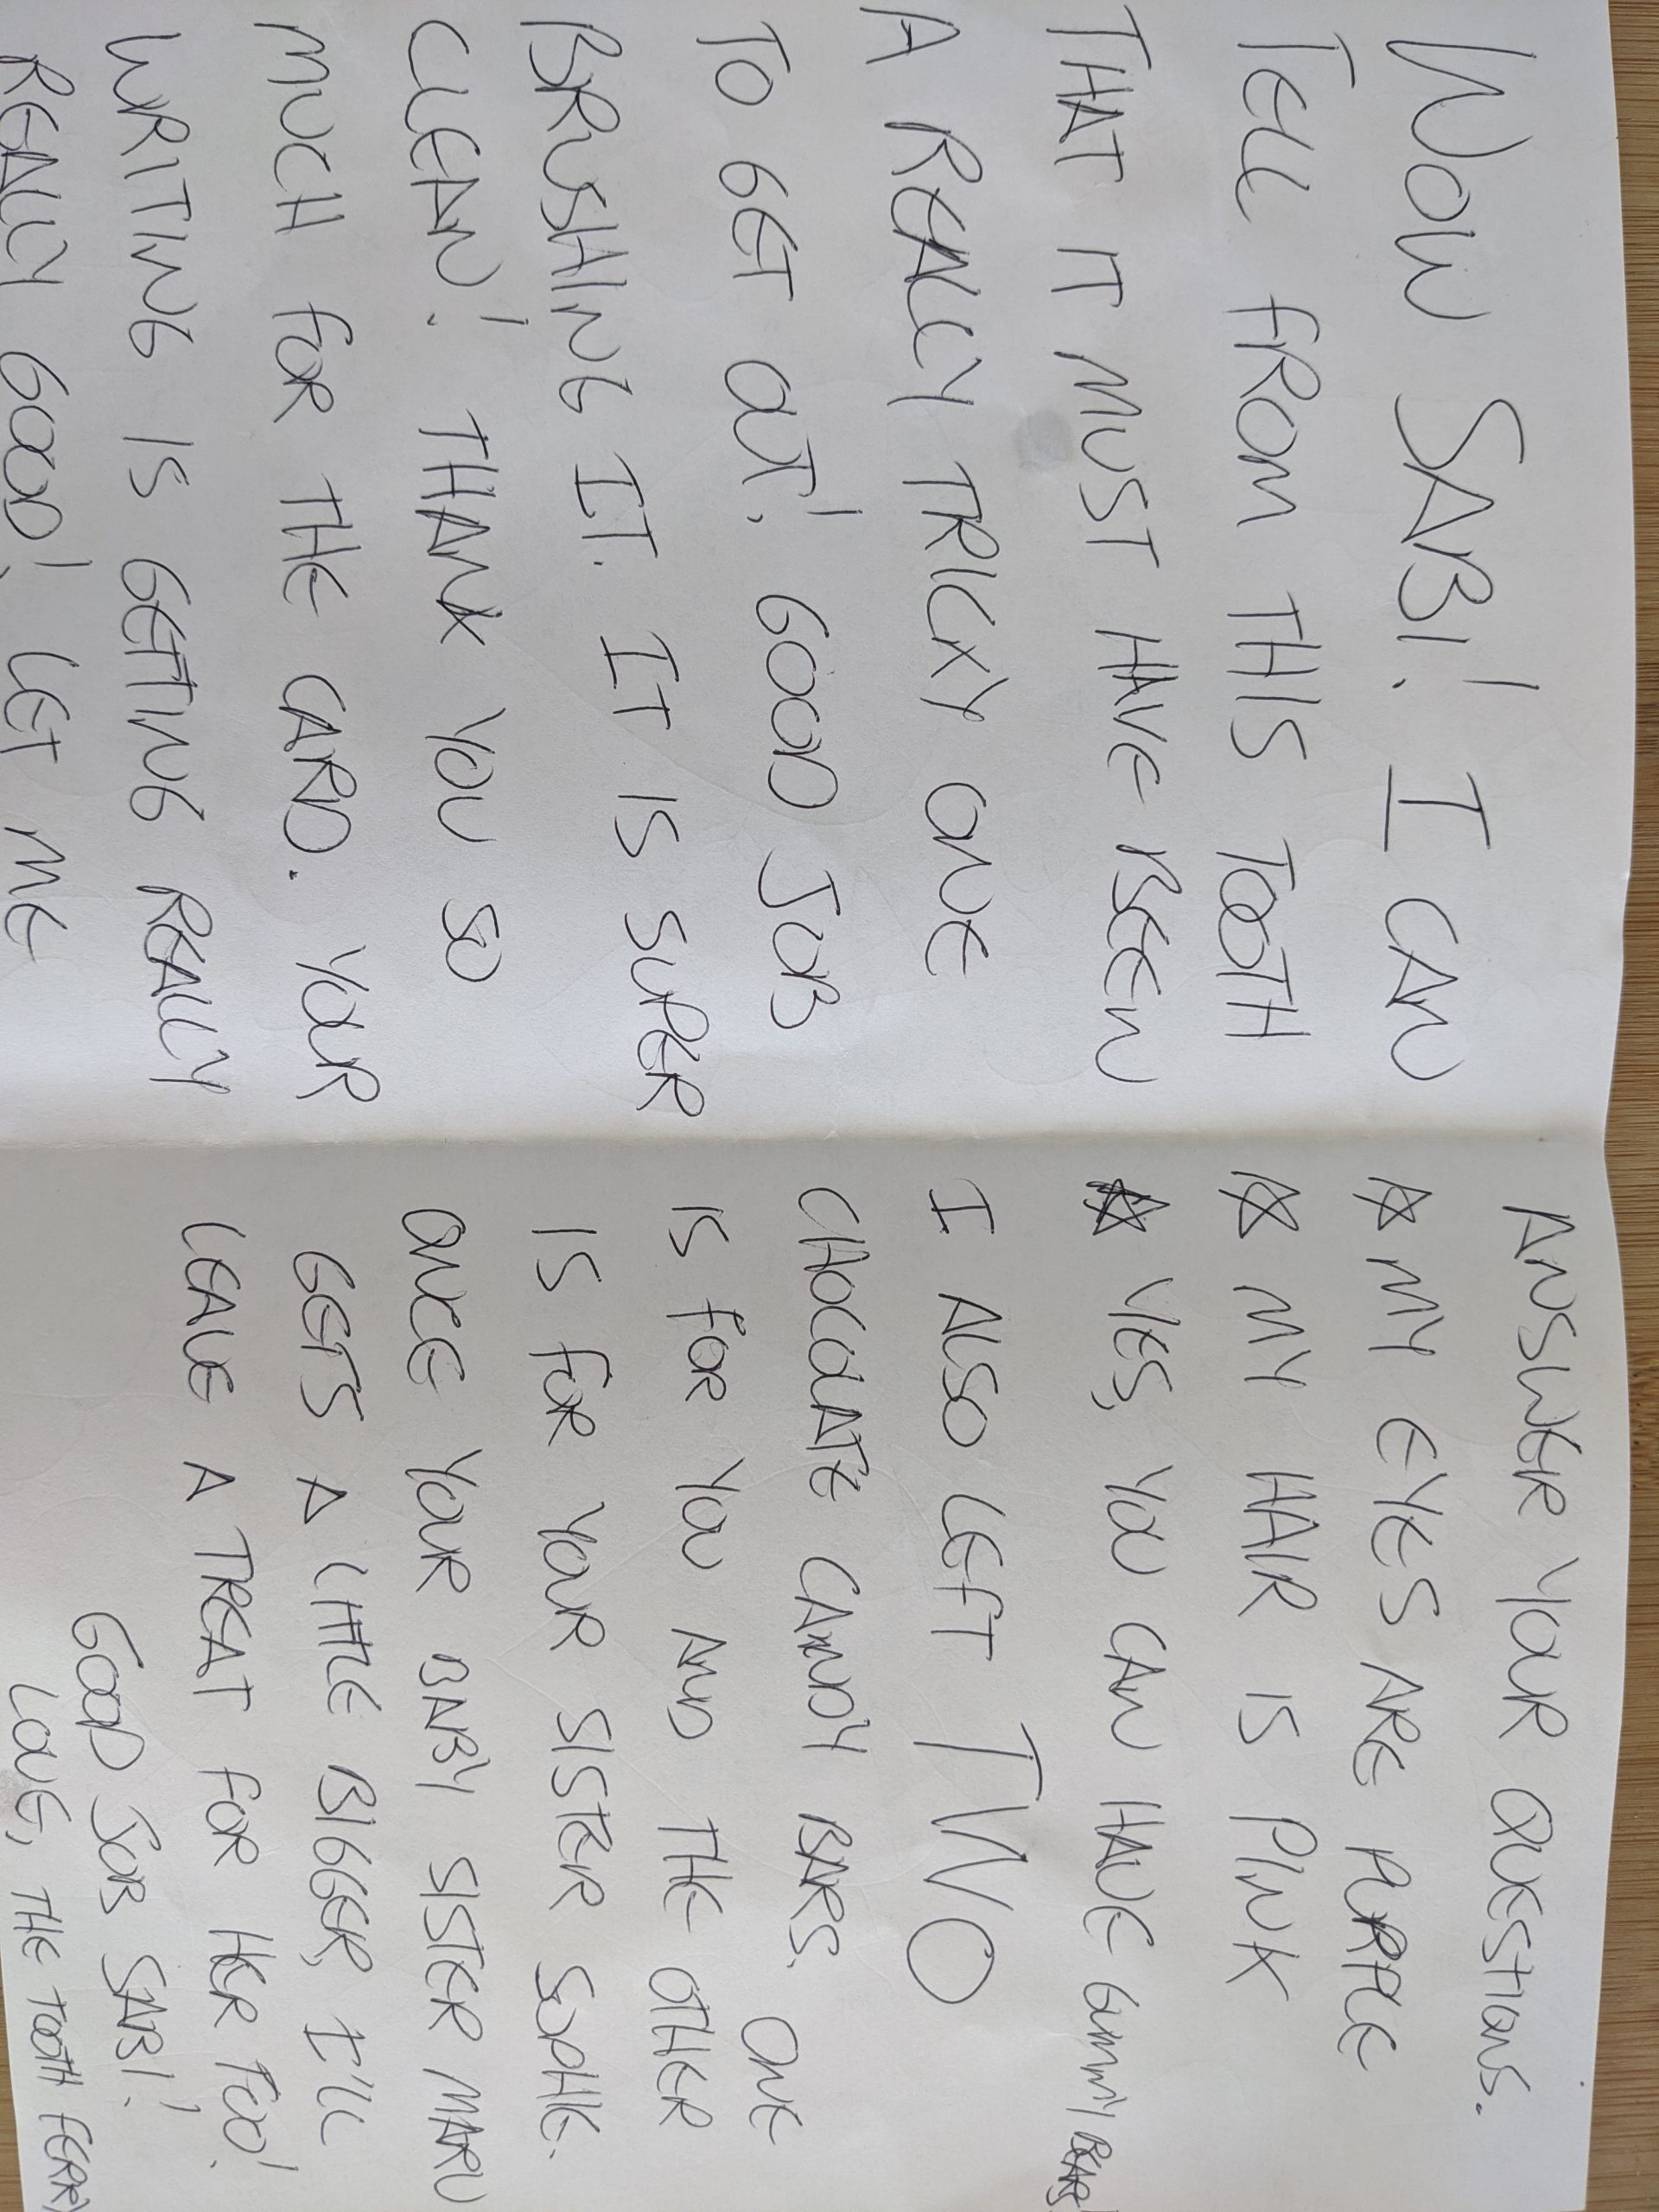 WOW SABI! I CAN
TELL FROM THIS TOOTH
THAT IT MUST HAVE BEEN
A REALLY TRICKY ONE
TO GET OUT! GOOD JOB
BRUSHING IT. IT IS SUPER
CLEAN! THANK YOU SO
MUCH FOR THE CARD. YOUR
WRITING IS GETTING REALLY
REALLY GOOD! LET ME
ANSWER YOUR QUESTIONS.
☆ MY EYES ARE PURPLE
☆ MY HAIR IS PINK
☆ YES, YOU CAN HAVE GUMMY BEARS!
I ALSO LEFT TWO
CHOCOLATE CANDY BARS. ONE
IS FOR YOU AND THE OTHER
IS FOR YOUR SISTER SOPHIE.
ONCE YOUR BABY SISTER MARU
GETS A LITTLE BIGGER, I'LL
LEAVE A TREAT FOR HER TOO!
GOOD JOB SABI!
LOVE, THE TOOTH FERRY